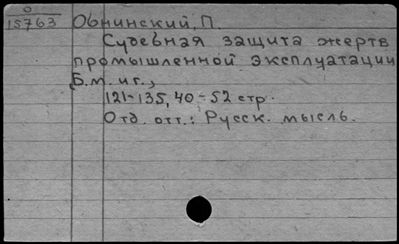 О
15763 Обнинский, П.
Судебная защита жертв
промышленной эксплуатации
Б.м. иг.,
121-135, 40-52 стр.
Отд. отт.: Русск. мысль.